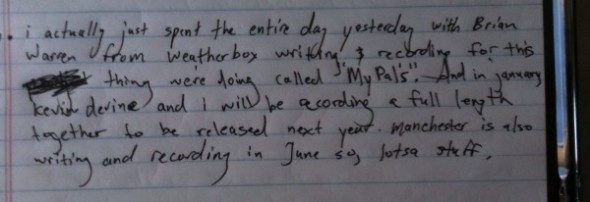 . i actually just spent the entire day yesterday with Brian
Warren from weatherbox writing & recording for this
thing were doing called "My Pals". And in january
kevin devine and i will be recording a full length
together to be released next year. Manchester is also
writing and recording in June so, lotsa stuff.